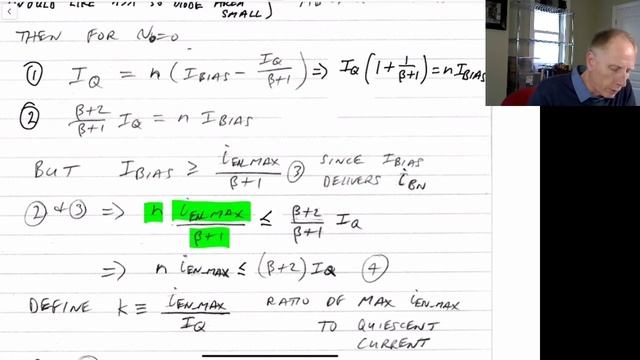 WOULD LIKE SO DIODE AREA
SMALL)
THEN FOR v₀=0
① I_Q = n (I_BIAS - I_Q/(β+1)) ⇒ I_Q(1 + 1/(β+1)) = n I_BIAS
② (β+2)/(β+1) I_Q = n I_BIAS
BUT I_BIAS ≥ i_EN_MAX/(β+1) ③ SINCE I_BIAS
DELIVERS i_BN
② & ③ ⇒ n i_EN_MAX/(β+1) ≤ (β+2)/(β+1) I_Q
⇒ n i_EN_MAX ≤ (β+2) I_Q ④
DEFINE k ≡ i_EN_MAX/I_Q RATIO OF MAX i_EN_MAX
TO QUIESCENT
CURRENT